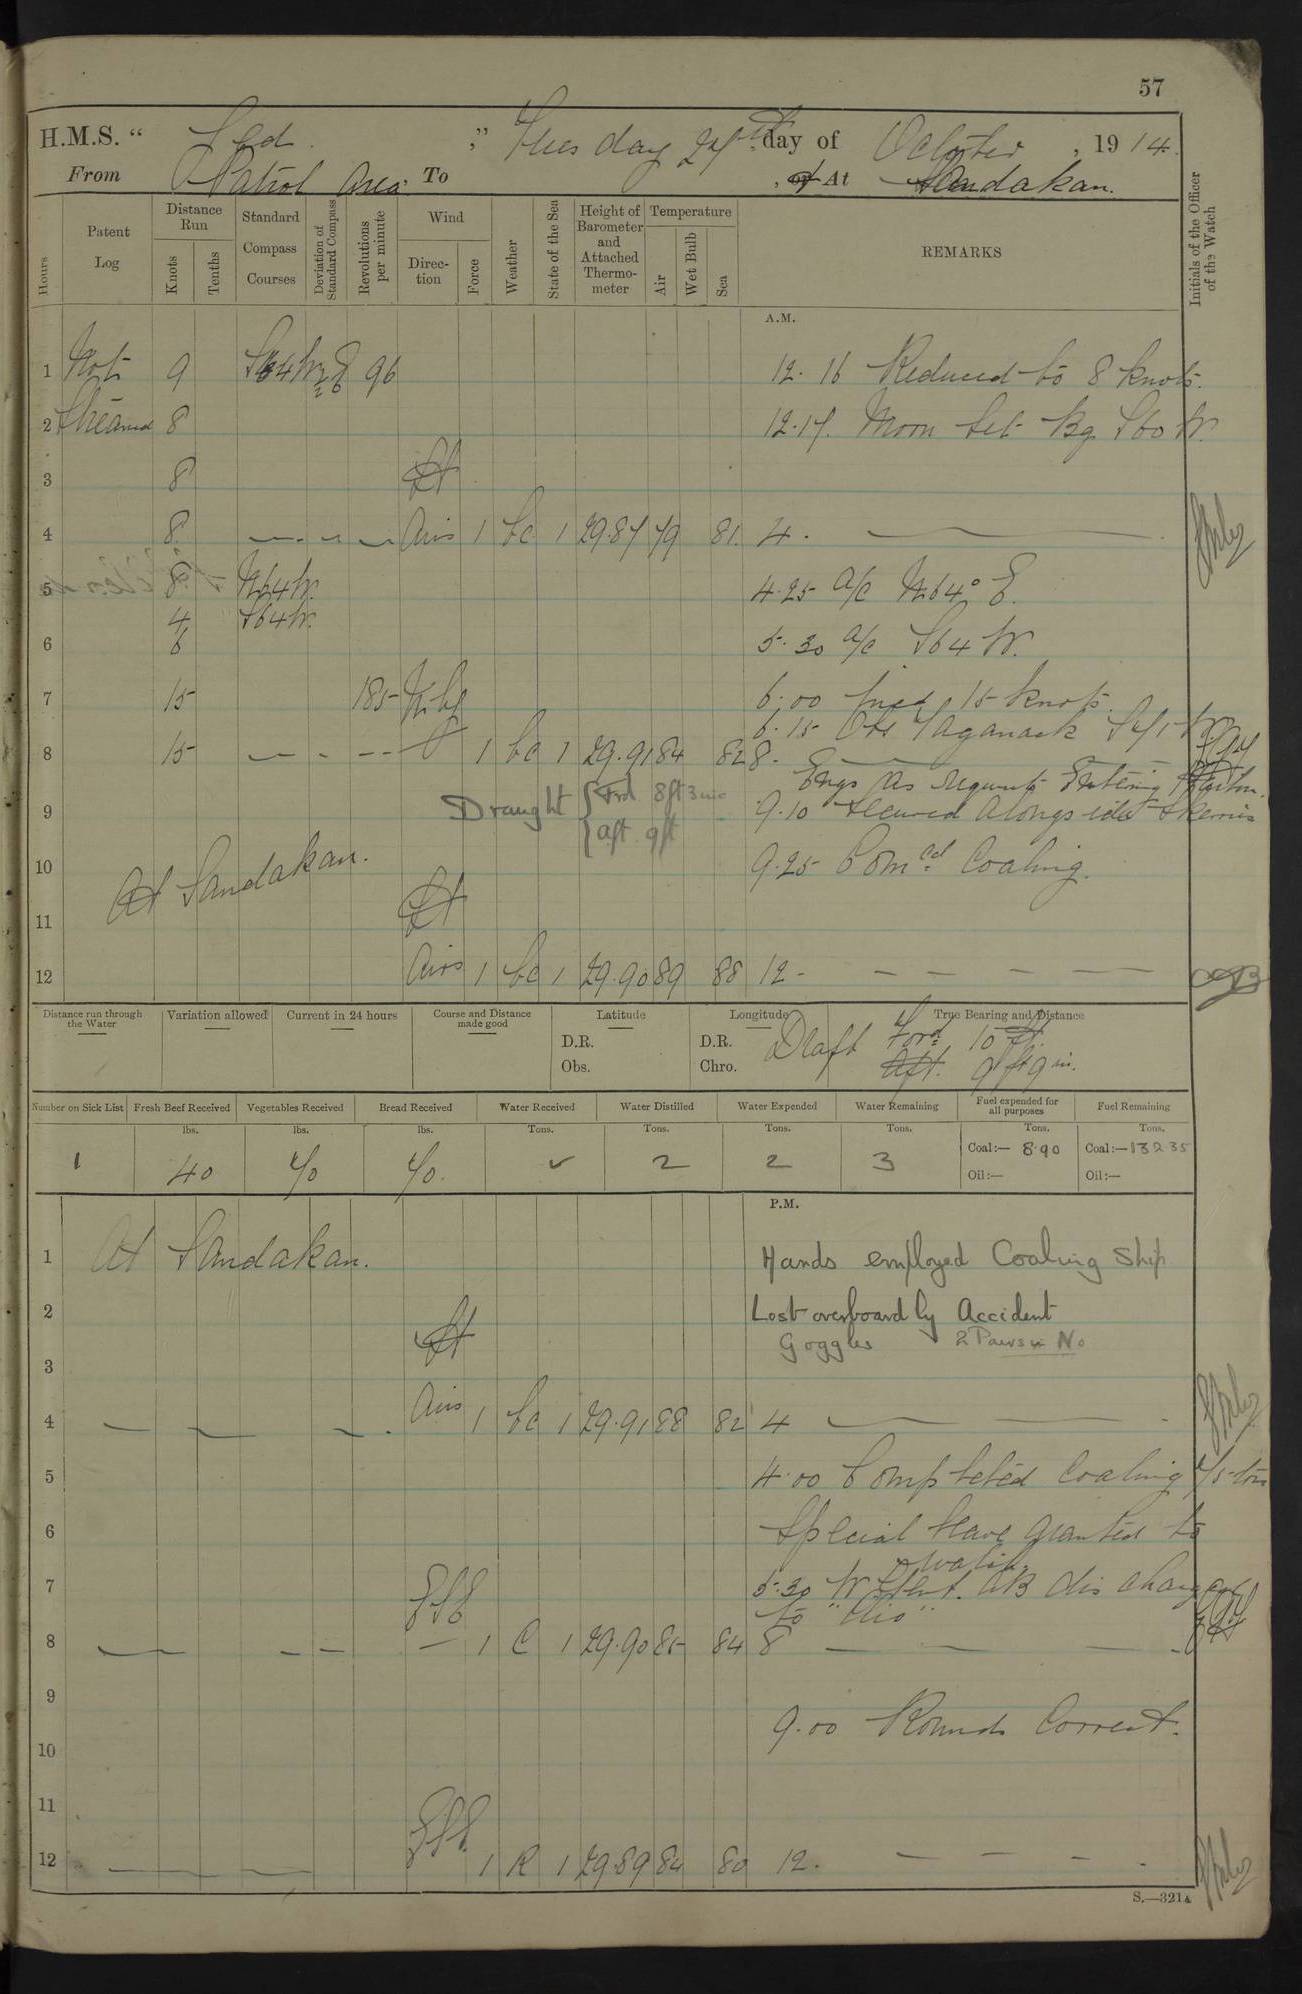 57
H.M.S. " ," Tuesday 27th day of October, 1914.
From Patrol Area, To , or At Sandakan.
Hours
Patent Log
Distance Run
Knots
Tenths
Standard Compass Courses
Deviation of Standard Compass
Revolutions per minute
Wind
Direction
Force
Weather
State of the Sea
Height of Barometer and Attached Thermometer
Temperature
Air
Wet Bulb
Sea
REMARKS
Initials of the Officer of the Watch
A.M.
1 Not 9 S64W 96 12.16 Reduced to 8 knots.
2 streamed 8 12.17. Moon Set Bg S60 W.
3 8 Lt
4 8 Airs 1 bc 1 29.87 79 81. 4.
5 8 N64W. 4.25 a/c N64° E.
4 S64W.
6 6 5.30 a/c S64W.
7 15 185 6.00 Incd 15 knots.
6.15 Obs Taganack
8 15 1 bc 1 29.91 84 82 8.
Engs as requisite Entering
9 Draught { Frd 8ft 3ins 9.10 Secured alongside
{ aft 9ft
10 At Sandakan. 9.25 Comcd Coaling.
11 Lt
12 Airs 1 bc 1 29.90 89 88 12
Distance run through the Water
Variation allowed
Current in 24 hours
Course and Distance made good
Latitude
D.R.
Obs.
Longitude
D.R.
Chro.
True Bearing and Distance
Draft Ford 10 ft.
Aft. 9ft 9in.
Number on Sick List Fresh Beef Received Vegetables Received Bread Received Water Received Water Distilled Water Expended Water Remaining Fuel expended for all purposes Fuel Remaining
lbs. lbs. lbs. Tons. Tons. Tons. Tons. Tons. Tons.
1 40 70 70. 2 2 3 Coal:— 8.90 Coal:—132.35
Oil:— Oil:—
P.M.
1 At Sandakan. Hands employed Coaling Ship
2 Lost overboard by Accident
Lt Goggles 2 Pairs in No
3
4 Airs 1 bc 1 29.91 88 82 4
5 4.00 Completed Coaling 75 tons
6 Special leave granted to
watch
7 5.30 W. AB discharged
to "Clio"
8 1 C 1 29.90 85 84 8
9
9.00 Rounds Correct.
10
11
12 1 R 1 29.89 84 80 12.
S.—321A